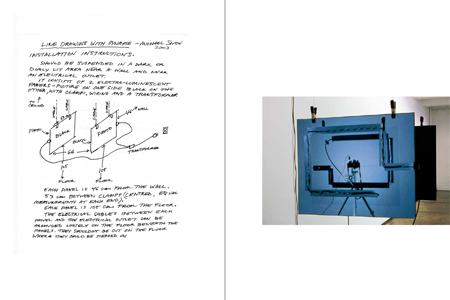 LINE DRAWING WITH SYNAPSE - MICHAEL SNOW
2003
INSTALLATION INSTRUCTIONS.
SHOULD BE SUSPENDED IN A DARK OR
DIMLY LIT AREA NEAR A WALL AND NEAR
AN ELECTRICAL OUTLET.
IT CONSISTS OF 2 ELECTRO-LUMINESCENT
PANELS - PICTURE ON ONE SIDE BLACK ON THE
OTHER, WITH CLAMPS, WIRING AND A TRANSFORMER
TO
WALL
BLACK
PHOTO
BLACK
66
TRANSFORMER
105
105
FLOOR
FLOOR
EACH PANEL IS 46 cm FROM THE WALL.
53 cm BETWEEN CLAMPS (CENTRED, EQUAL
MEASUREMENTS AT EACH END).
EACH PANEL IS 105 cm FROM THE FLOOR.
THE ELECTRICAL CABLES BETWEEN EACH
PANEL AND THE ELECTRICAL OUTLET CAN BE
ARRANGED LOOSELY ON THE FLOOR BENEATH THE
PANELS. THEY SHOULDN'T BE OUT ON THE FLOOR
WHERE THEY COULD BE STEPPED ON